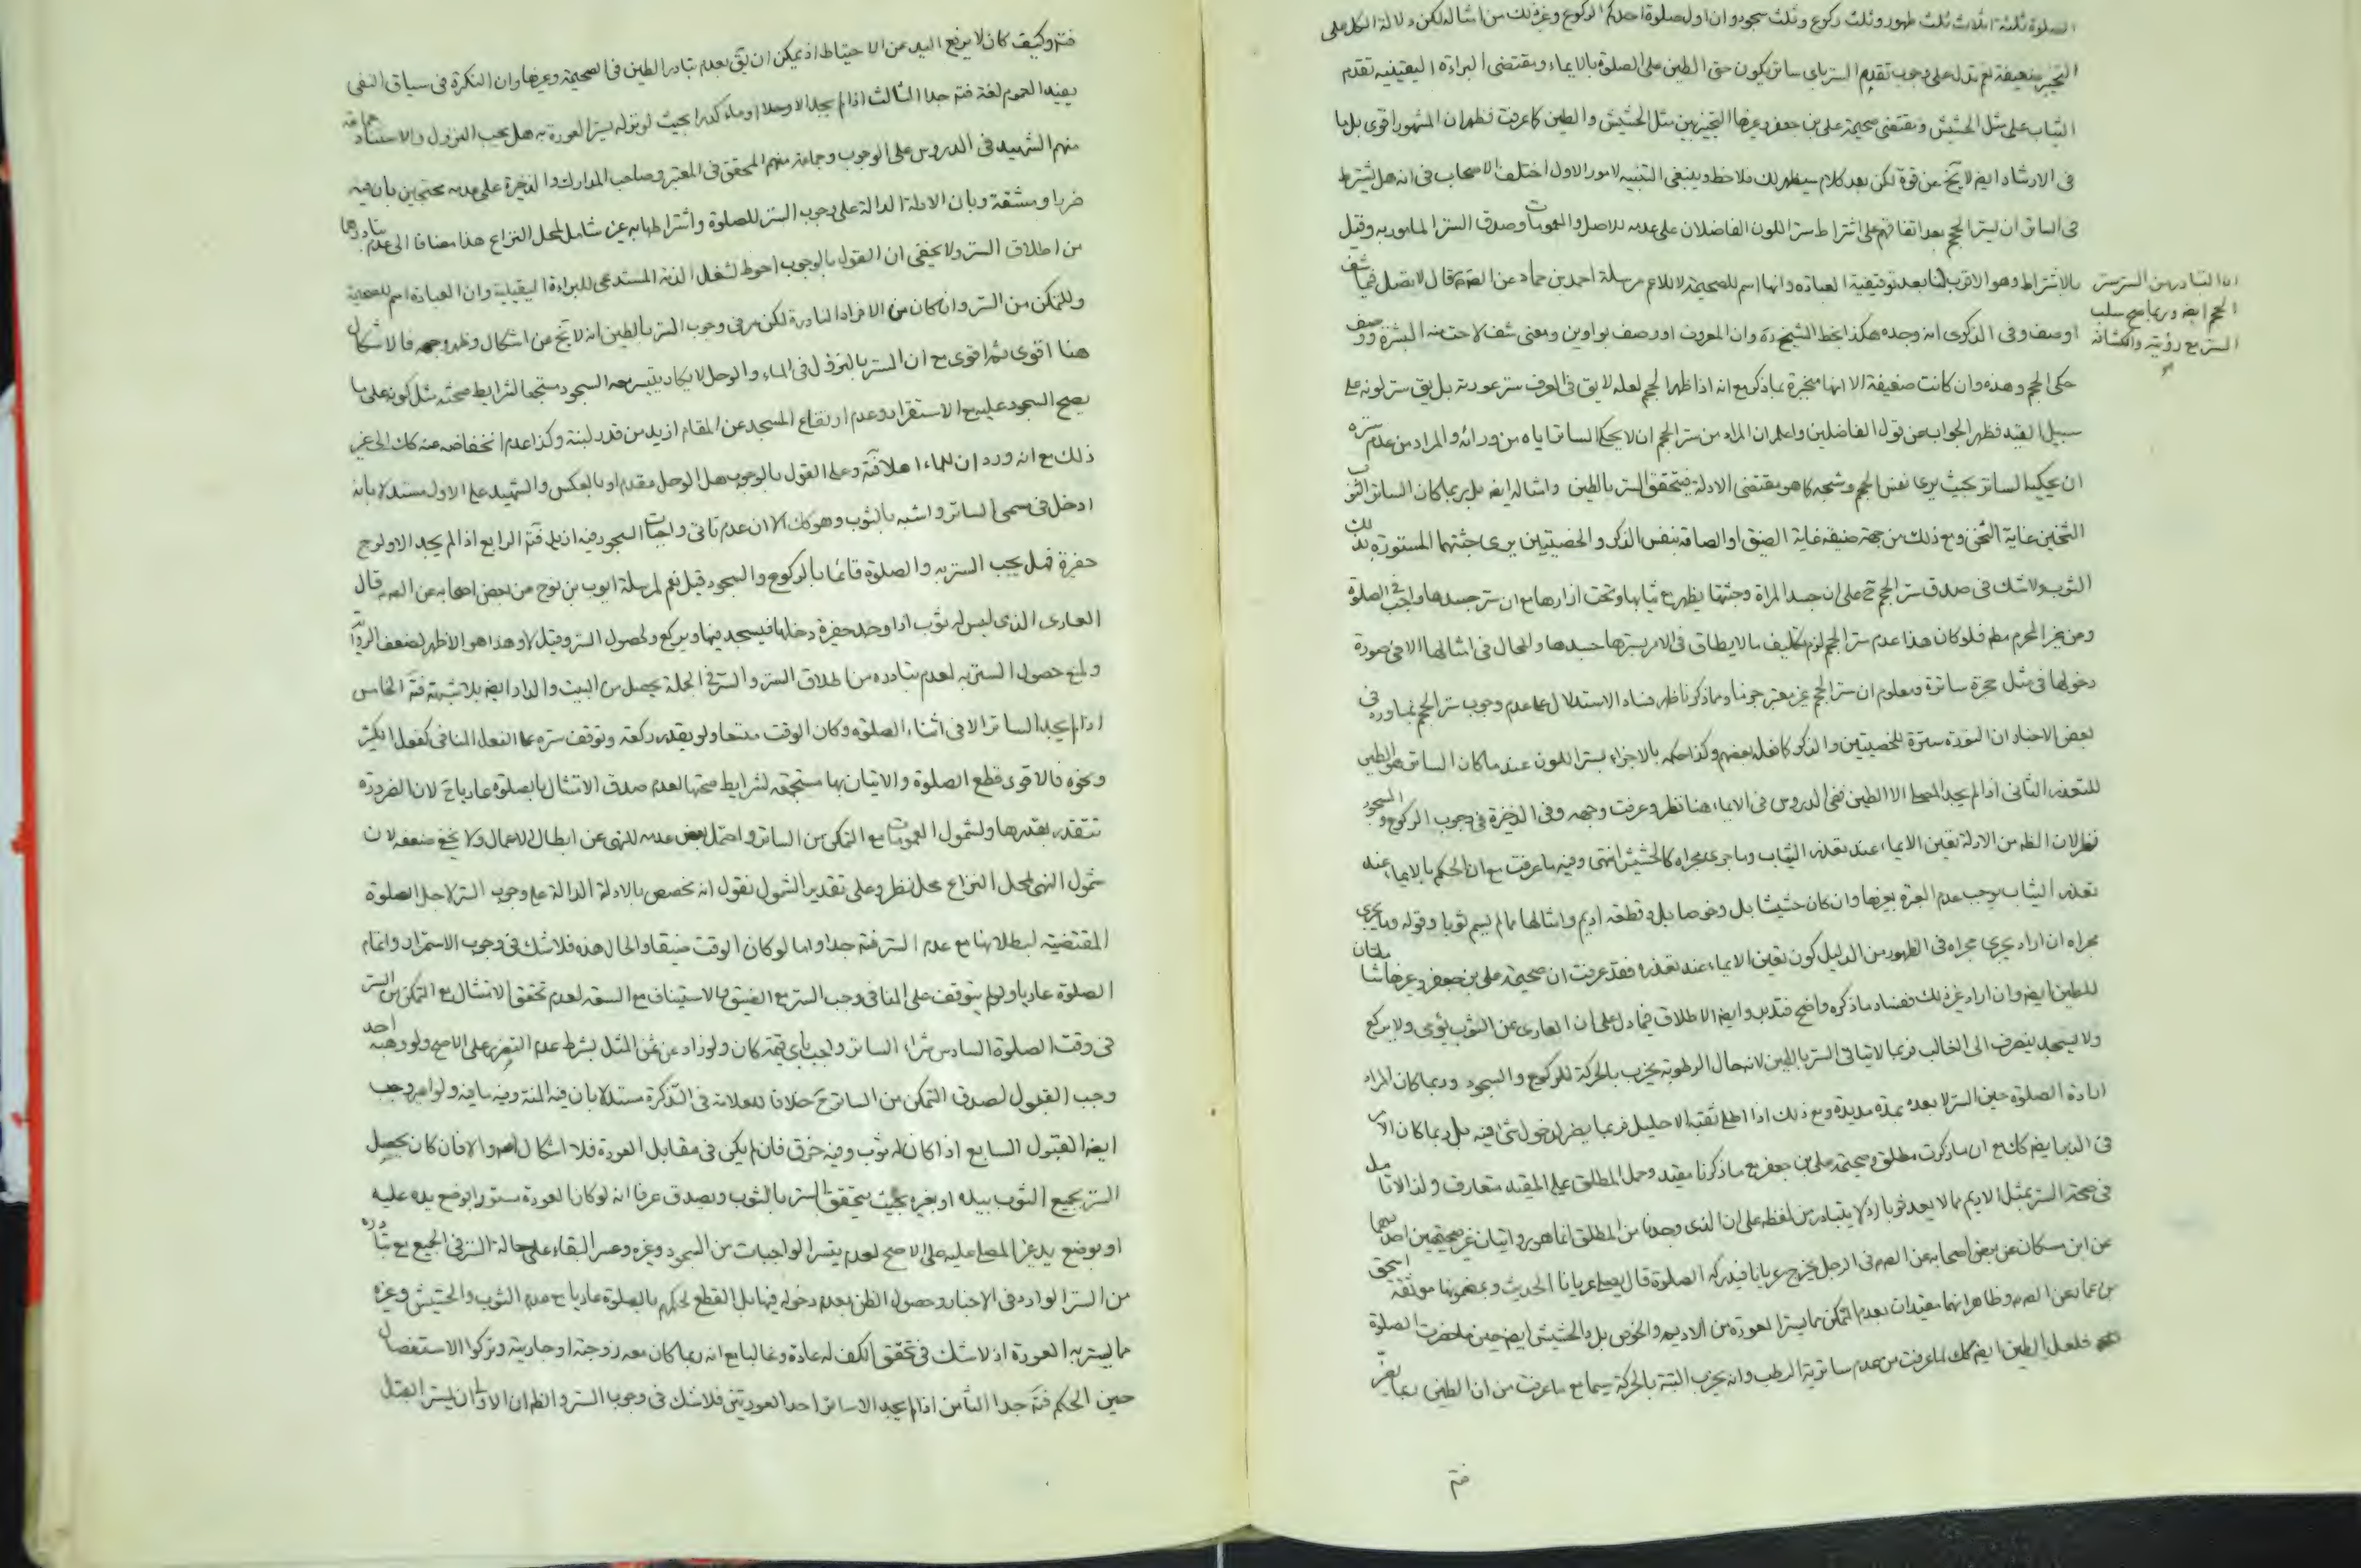 الصلوة ثلثة اثلاث ثلث طهور وثلث ركوع وثلث سجود وان اول صلوة احدكم الركوع وغير ذلك من امثاله لكن دلالة الكل على
التخيير ضعيفة نعم تدل على وجوب تقديم الستر باى ساتر يكون حتى الطين على الصلوة بالايماء ومقتضى البراءة اليقينية تقديم
الثياب على مثل الحشيش ومقتضى صحيحة على بن جعفر وغيرها التخيير بين مثل الحشيش والطين كما عرفت فظهر ان المشهور اقوى بل ما
فى الارشاد ايضا لا يخ عن قوة لكن بعد كلام سيظهر لك ملاحظه وينبغى التنبيه لامور الاول اختلف الاصحاب فى انه هل يشترط
فى الساتر ان يستر الحجم بعد اتفاقهم على اشتراط ستر اللون الفاضلان على عدمه للاصل والعمومات وصدق الستر المامور به وقيل
بالاشتراط وهو الاقرب لنا بعد توقيفية العبادة وانها اسم للصحيحة لا للاعم مرسلة احمد بن حماد عن الصه قال لا تصل فيما شف
اوصف وفى الذكرى انه وجده هكذا بخط الشيخ ره وان المعروف او وصف بواوين ومعنى شف لاحت منه البشرة ووصف
حكى الحجم وهذه وان كانت ضعيفة الا انها منجبرة بما ذكر مع انه اذا ظهر الحجم لعله لا يق فى العرف ستر عورته بل يق ستر لونه على
سبيل القيد فظهر الجواب عن قول الفاضلين واعلم ان المراد من ستر الحجم ان لا يحكى الساتر اياه من ورائه والمراد من عدم ستره
ان يحكيه الساتر بحيث يرى نفس الحجم وشبحه كما هو مقتضى الادلة فيتحقق الستر بالطين وامثاله ايضا بل ربما كان الساتر الثوب
الثخين غاية الثخن ومع ذلك من جهة ضيقه غاية الضيق او الصاقه بنفس الذكر والخصيتين يرى جثتهما المستورة بذلك
الثوب ولا شك فى صدق ستر الحجم ح على ان جسد المراة وجثتها يظهر مع ثيابها وتحت ازارها مع ان ستر جسدها واجب فى الصلوة
ومن غير المحرم مطم فلو كان هذا عدم ستر الحجم لزم تكليف ما لا يطاق فى الامر بسترها جسدها والمحال فى امثالها الا فى صورة
دخولها فى مثل حجرة ساترة ومعلوم ان ستر الحجم غير معتبر جوفا ومما ذكرنا ظهر فساد الاستدلال على عدم وجوب ستر الحجم بما ورد فى
بعض الاخبار ان النورة سترة للخصيتين والذكر كما فعله بعضهم وكذا حكمه بالاجزاء بستر اللون عند ما كان الساتر هو الطين
للتعذر الثانى اذا لم يجد المصلى الا الطين نفى الدروس فى الايماء هنا نظر وعرفت وجهه وفى الذخيرة فى وجوب الركوع والسجود
نظر لان الظ من الادلة تعين الايماء عند تعذر الثياب وما جرى مجراه كالحشيش انتهى وفيه ما عرفت مع ان الحكم بالايماء عند
تعذر الثياب يوجب عدم العبرة بغيرها وان كان حشيشا بل وخوصا بل وقطعة اديم وامثالها مما لم يسم ثوبا وقوله وما يجرى
مجراه ان اراد يجرى مجراه فى الظهور من الدليل كون تعين الايماء عند تعذره فقد عرفت ان صحيحة على بن جعفر وغيرها شاملتان
للطين ايضا وان اراد غير ذلك ففساد ما ذكره واضح فتدبر وايضا الاطلاق فيما دل على ان العارى عن الثوب يؤمى ولا يركع
ولا يسجد ينصرف الى الغالب فربما لا يتاتى الستر بالطين لانه حال الرطوبة يخرب بالحركة للركوع والسجود وربما كان المراد
ارادة الصلوة حين الستر لا بعده بمدة مديدة ومع ذلك اذا اطلى ثقبه الاحليل فربما يضر لدخول شئ فيه بل ربما كان الامر
فى الدبر ايضا كك مع ان ما ذكرت مطلق وصحيحة على بن جعفر مع ما ذكرنا مقيد وحمل المطلق على المقيد متعارف ولذا لا تامل
فى صحة الستر بمثل الاديم مما لا يعد ثوبا اذ لا يتبادر من لفظه على ان الذى وجدنا من المطلق انما هو روايتان غير صحيحتين احديهما
عن ابن مسكان عن بعض اصحابه عن الصه فى الرجل يخرج عريانا فيدركه الصلوة قال يصلى عريانا الحديث وبمضمونها موثقة اسحق
بن عمار عن الصه وظاهر انهما مقيدتان بعدم التمكن مما يستر العورة من الاديم والخوص بل والحشيش ايضا حين ما حضرت الصلوة
فلعل الطين ايضا كك لما عرفت من عدم ساترية الرطب وانه يخرب البتة بالحركة سيما مع ما عرفت من ان الطين ربما يضر
اذ المتبادر من الستر ستر
الحجم ايضا وربما صح سلب
الستر مع رؤيته وانكشافه
فتم
فتم وكيف كان لا يرفع اليد عن الاحتياط اذ يمكن ان يق بعدم تبادر الطين فى الصحيحة وغيرها وان النكرة فى سياق النفى
يفيد العموم لغة فتم جدا الثالث اذا لم يجد الا وحلا او ماء كدرا بحيث لو نزله يستر العورة به هل يجب النزول والاستتار جماعة
منهم الشهيد فى الدروس على الوجوب وجماعة منهم المحقق فى المعتبر وصاحب المدارك والذخيرة على عدمه محتجين بان فيه
ضررا ومشقة وبان الادلة الدالة على وجوب الستر للصلوة واشتراطها به غير شامل لمحل النزاع هذا مضافا الى عدم تبادرهما
من اطلاق الستر ولا يخفى ان القول بالوجوب احوط لشغل الذمة المستدعى للبراءة اليقينية وان العبادة اسم للصحيحة
وللتمكن من الستر وان كان من الافراد النادرة لكن مر فى وجوب الستر بالطين انه لا يخ من اشكال وظهر وجهه فالاشكال
هنا اقوى ثم اقوى مع ان الستر بالنزول فى الماء والوحل لا يكاد يتيسر معه السجود مستجمعا لشرايط صحته مثل كونه على ما
يصح السجود عليه مع الاستقرار وعدم ارتفاع المسجد عن المقام ازيد من قدر لبنة وكذا عدم انخفاضه عنه كك الى غير
ذلك مع انه ورد ان للماء اهلا فتم وعلى القول بالوجوب هل الوحل مقدم او بالعكس والشهيد على الاول مستدلا بانه
ادخل فى مسمى الساتر واشبه بالثوب وهو كك الا ان عدم تاتى واجبات السجود فيه ازيد فتم الرابع اذا لم يجد الا ولوج
حفرة فهل يجب الستر به والصلوة قائما بالركوع والسجود قيل نعم لمرسلة ايوب بن نوح من بعض اصحابه عن الصه قال
العارى الذى ليس له ثوب اذا وجد حفرة دخلها فيسجد فيها ويركع ولحصول الستر وقيل لا وهذا هو الاظهر لضعف الرواية
ولمنع حصول الستر به لعدم تبادره من اطلاق الستر والستر فى الجملة يحصل من البيت والدار ايضا بلا شبهة فتم الخامس
اذا لم يجد الساتر الا فى اثناء الصلوة وكان الوقت متسعا ولو بقدر ركعة وتوقف ستره على الفعل المنافى كفعل الكثير
ونحوه فالاقوى قطع الصلوة والاتيان بها مستجمعة لشرايط صحتها لعدم صدق الامتثال بالصلوة عاريا ح لان الضرورة
تتقدر بقدرها ولشمول العمومات مع التمكن من الساتر واحتمل بعض عدمه للنهى عن ابطال الاعمال ولا يخفى ضعفه لان
شمول النهى لمحل النزاع محل نظر وعلى تقدير الشمول نقول انه مخصص بالادلة الدالة على وجوب الستر لاجل الصلوة
المقتضية لبطلانها مع عدم الستر فتم جدا واما لو كان الوقت ضيقا والحال هذه فلا شك فى وجوب الاستمرار واتمام
الصلوة عاريا ولو لم يتوقف على المنافى وجب الستر مع الضيق والاستيناف مع السعة لعدم تحقق الامتثال مع التمكن من الستر
فى وقت الصلوة السادس شراء الساتر واجب باى قيمة كان ولو زاد عن ثمن المثل بشرط عدم التضرر على الاصح ولو وهبه احد
وجب القبول لصدق التمكن من الساتر ح خلافا للعلامة فى التذكرة مستدلا بان فيه المنة وفيه ما فيه ولو اعير وجب
ايضا القبول السابع اذا كان له ثوب وفيه خرق فان لم يكن فى مقابل العورة فلا اشكال والا فان كان يحصل
الستر بجميع الثوب بيده او بغيره بحيث يتحقق الستر بالثوب ويصدق عرفا انه لو كان العورة مستورا بوضع يده عليه
او بوضع يد غير المصلى عليه على الاصح لعدم تيسر الواجبات من السجود وغيره وعسر البقاء على حالة الستر فى الجميع مع تبادره
من الستر الوارد فى الاخبار وحصول الظن بعدم دخوله فيها بل القطع لحكمهم بالصلوة عاريا مع عدم الثوب والحشيش وغيره
مما يستر به العورة اذ لا شك فى تحقق الكف له عادة وغالبا مع انه ربما كان معه زوجته او جاريته وتركوا الاستفصال
حين الحكم فتم جدا الثامن اذا لم يجد الا ساتر احد العورتين فلا شك فى وجوب الستر والظ ان الاولى ان يستر القبل